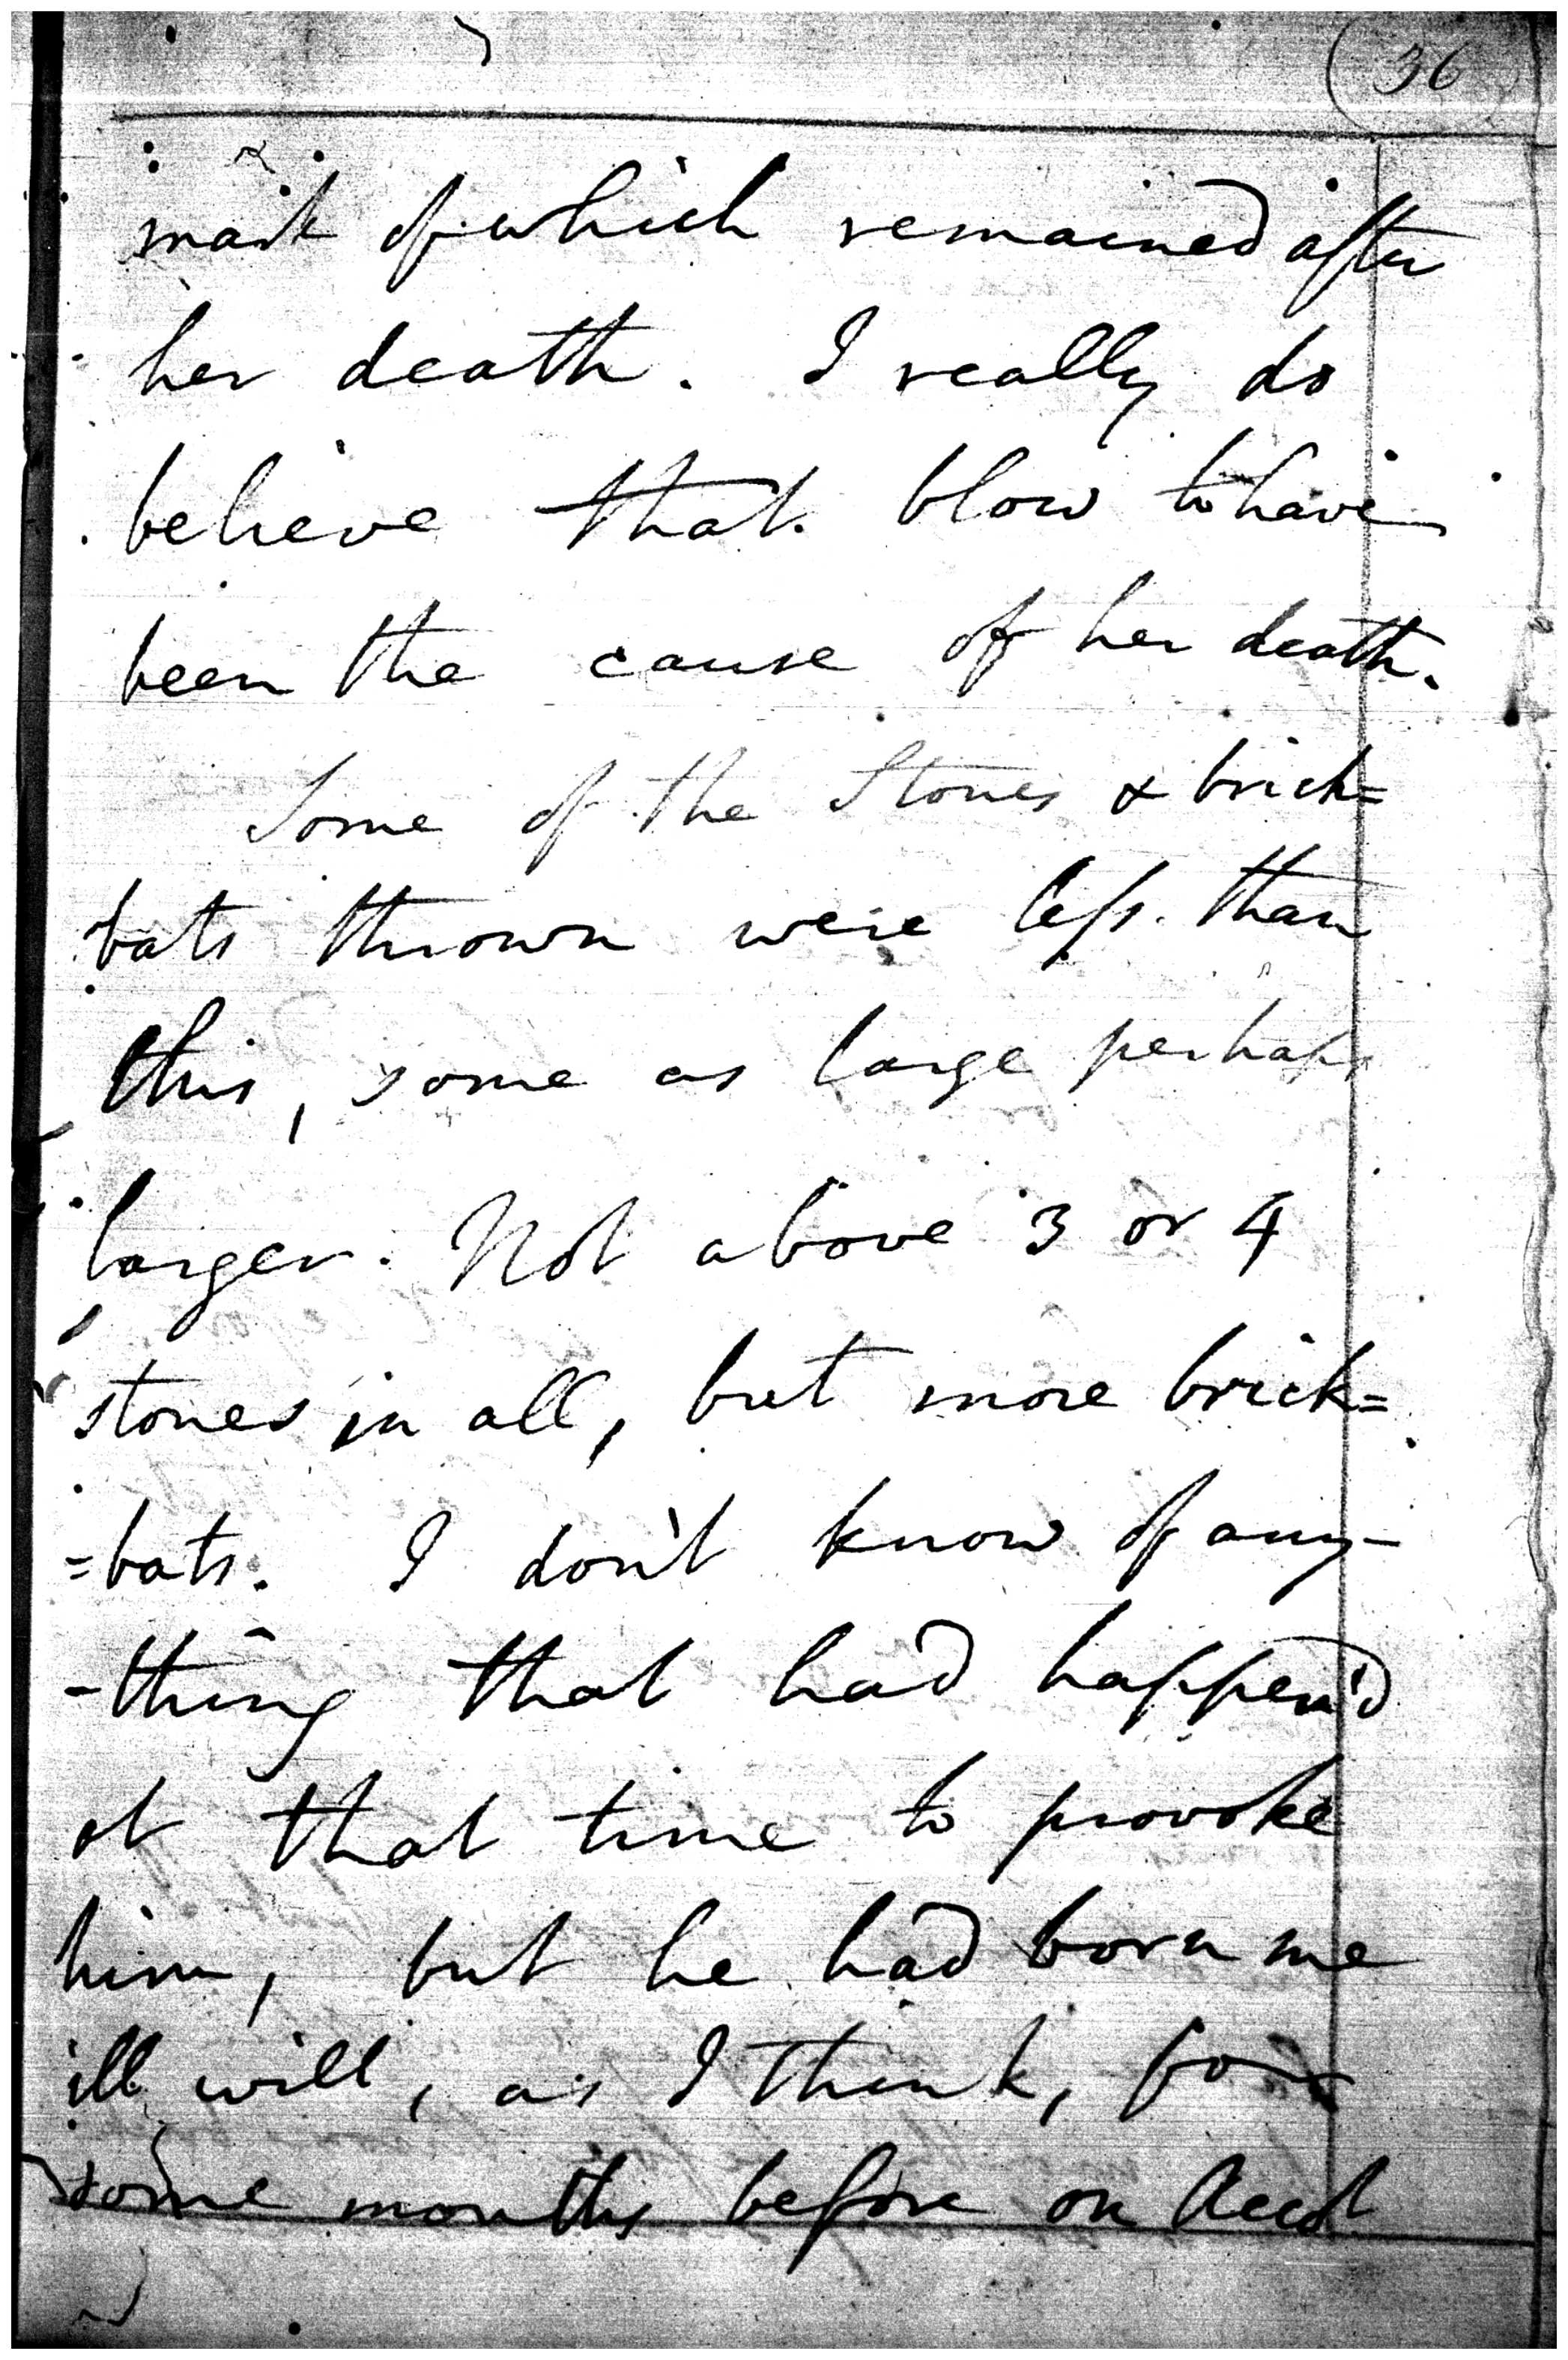 (36)
mark of which remained after
her death. I really do
believe that blow to have
been the cause of her death.
Some of the Stones & brick=
bats thrown were less than
this, some as large perhaps
larger. Not above 3 or 4
stones in all, but more brick=
=bats. I don't know of any-
-thing that had happen'd
at that time to provoke
him, but he had born me
ill will, as I think, for
some months before on Acct